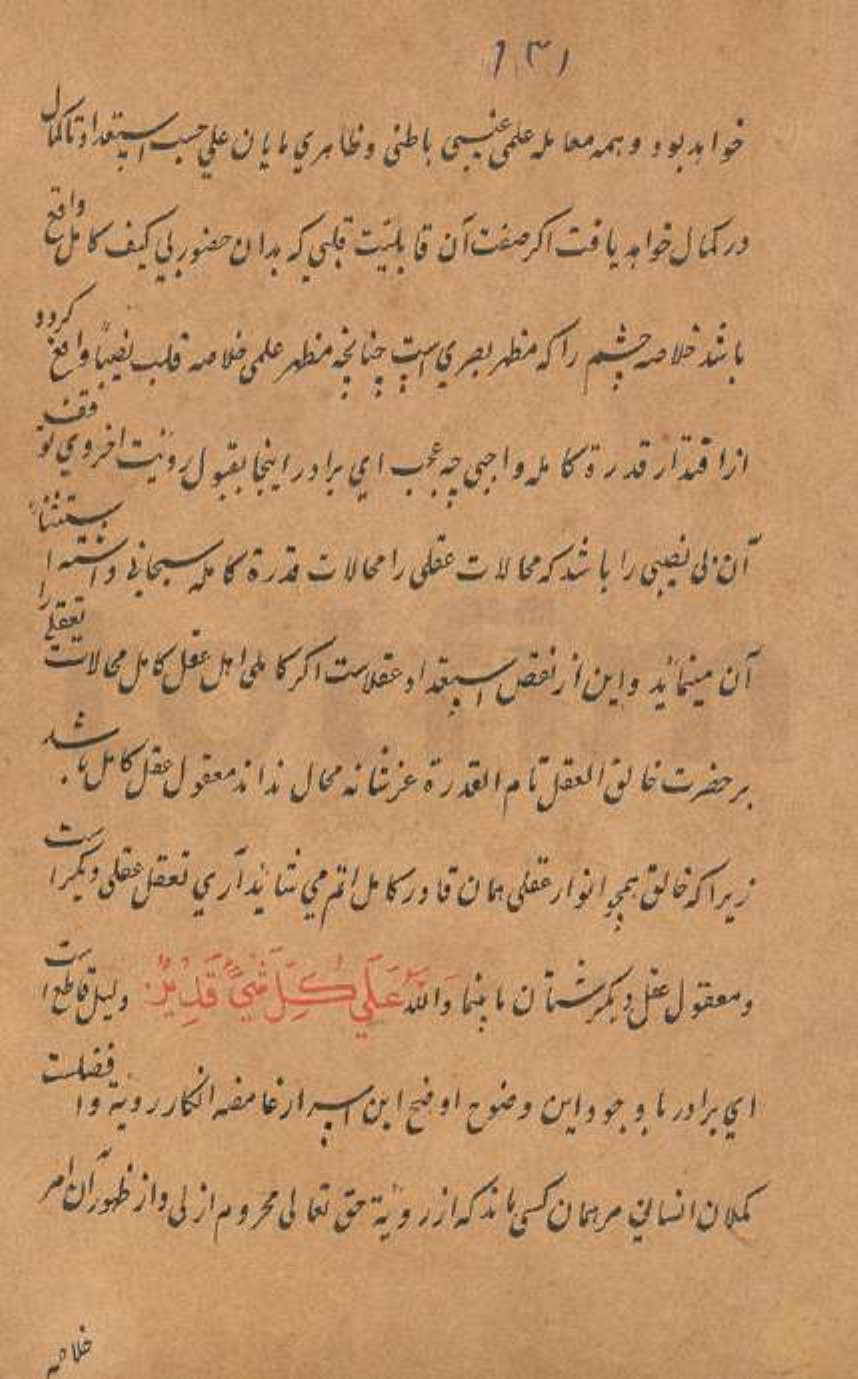 ۱۳۱
خواهد بود و همه معامله علمی غیبی باطنی و ظاهري مایان علي حسب استعداد تا کمال
در کمال خواهد یافت اکر صفت آن قابلیّت قلبي که بدان حضور بي کیف کامل واقع
باشد خلاصه چشم را که مظهر بصري است چنانچه مظهر علمی خلاصه قلب نصیبًا واقع کردد
از اقتدار قدرة کامله واجبي چه عجب اي برادر اینجا بقبول رؤیت اخروي توقف
آن بی نصیبی را باشد که محالات عقلی را محالات قدرة کامله سبحاني داشته استثناء
آن مینماید و این از نقص استعداد عقلاست اکر کاملی اهل عقل کامل محالات تعقلے را
بر حضرت خالق العقل تام القدرة عز شانه محال نداند معقول عقل کامل باشد
زیرا که خالق همچو انوار عقلی همان قادر کامل اتم می شاید آري تعقل عقلی دیکر است
و معقول عقل دیکر شتان ما بینهما والله عَلَي كُلِّ شَيْءٍ قَدِيرٌ دلیل قاطع است
اي برادر با وجود این وضوح اوضح این اسرار غامضه انکار رویة و افضلت
کملان انساني مر همان کسی باند که از رویة حق تعالی محروم ازلی و از ظهور آن امر
خلاصه